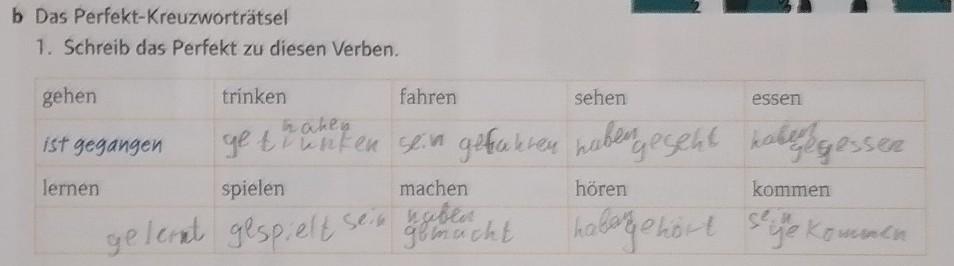 b Das Perfekt-Kreuzworträtsel
1. Schreib das Perfekt zu diesen Verben.
gehen trinken fahren sehen essen
ist gegangen haben getrunken sein gefahren haben geseht haben gegessen
lernen spielen machen hören kommen
gelernt gespielt sein haben gemacht haben gehört sein gekommen